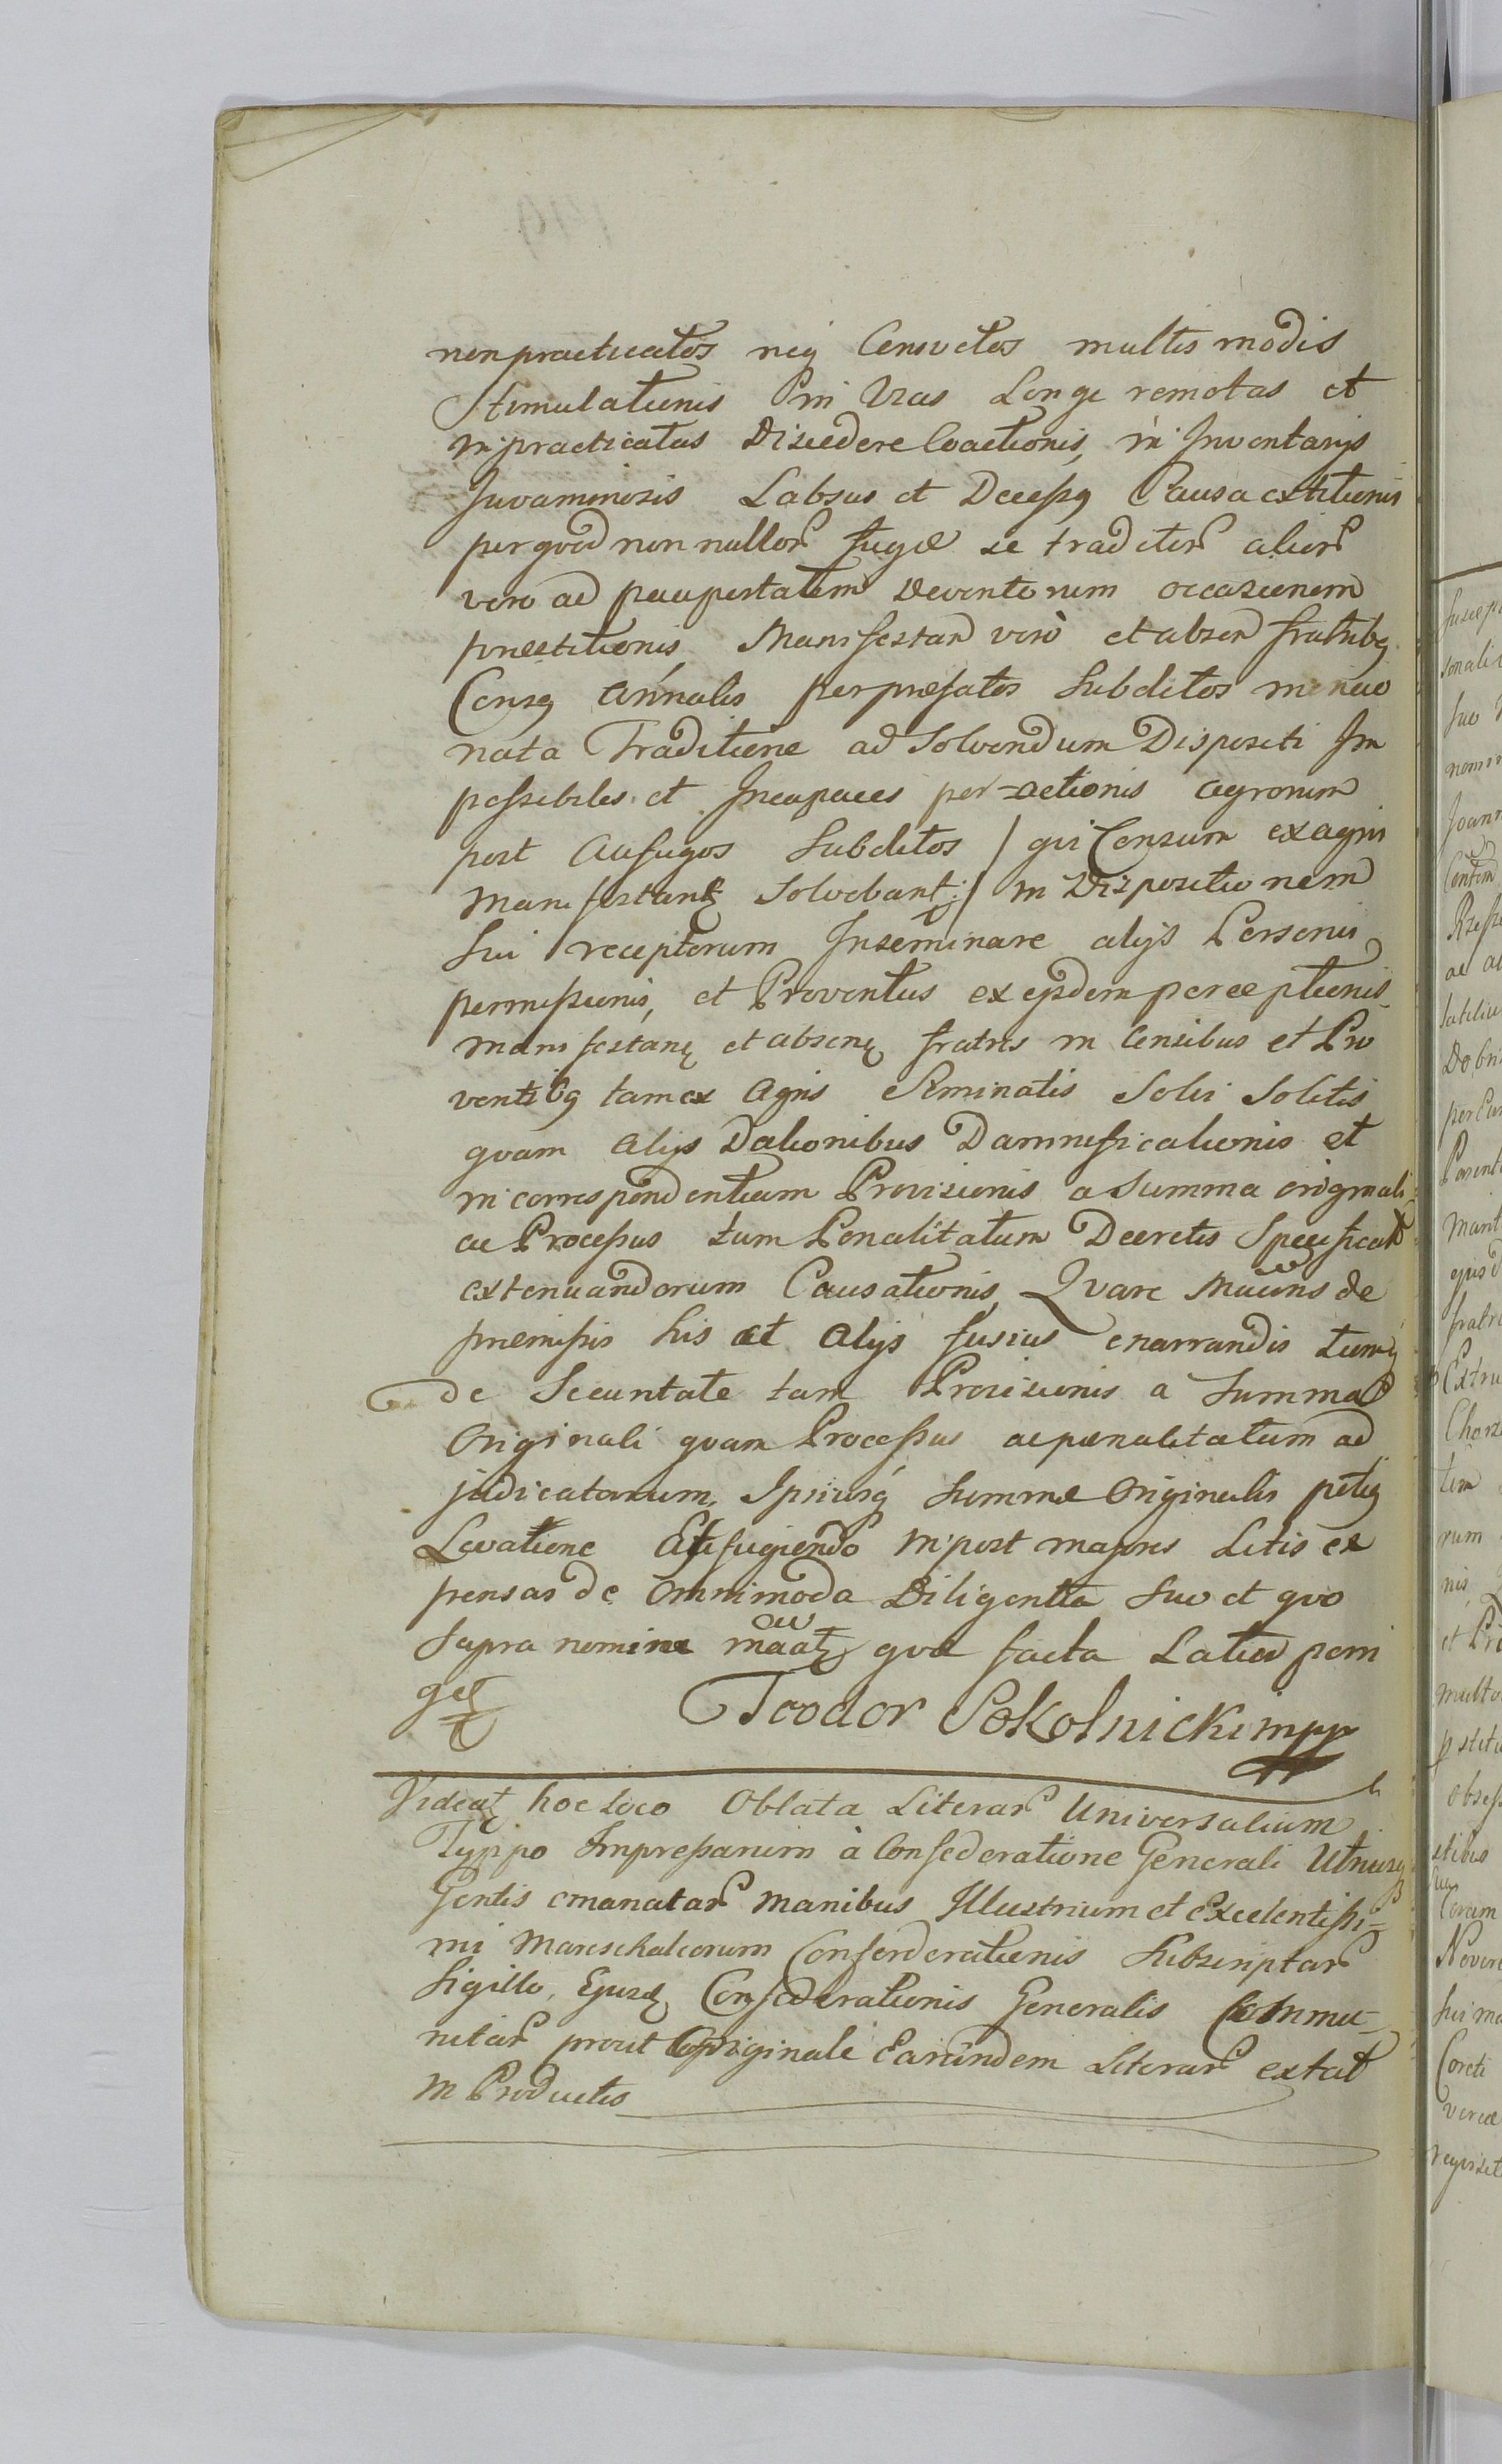 non practicatos neq Consvetos multis modis
Stimulationis in Vias Longe remotas et
inpracticatas Discedere Coactionis, in Inventarijs
Juvaminosis Labsus et Decessq Causa extitionis
per qvod non nullor fugæ se traditor alior
vero ad paupertatem deventorum occasionem
præstitionis, Manifestan verò et absen fratribq
Censq Annalis per præfatos Subditos
nata Traditione ad Solvendum Dispositi Im
possibiles et Incapaces per-actionis agrorum
post Aufugos Subditos / qvi Censum ex agris
Manifestant Solvebant / in Dispositionem
Sui receptorum Inseminare alijs Personis
permissionis, et Proventus ex ejsdem perceptionis
manifestan et absen fratris in Censibus et Pro
ventibq tam ex Agris Seminatis Solvi Solitis
qvam alijs Dationibus Damnificationis et
in correspondentiam Provisionis a Summa originali
ac Processus tum Penalitatum Decretis Specificat
extenuandorum Causationis, Qvare Mains de
præmissis his et alijs fusius enarrandis tumq
de Securitate tam Provisionis a Summa
Originali qvam Processus ac pœnalitatum ad
judicatarum, Ipsiusq Summæ Originalis
Levatione Effugiendo inpost majores Litis ex
pensas de omnimoda Diligentia Suo et qvo
supra nomine maat qvæ facta Latius porri
get
Teodor Sokolnicki mpp
Videat hoc loco Oblata Literar Universalium
Typpo Impressarum à Confederatione Generali Utriusq
Gentis emanatar manibus Illustrium et Excelentissi=
mi Mareschalcorum Conforderationis Subscriptar
Sigillo, Ejusd Confederationis Generalis Commu=
nitar prout Originale Earundem Literar extat
in Productis